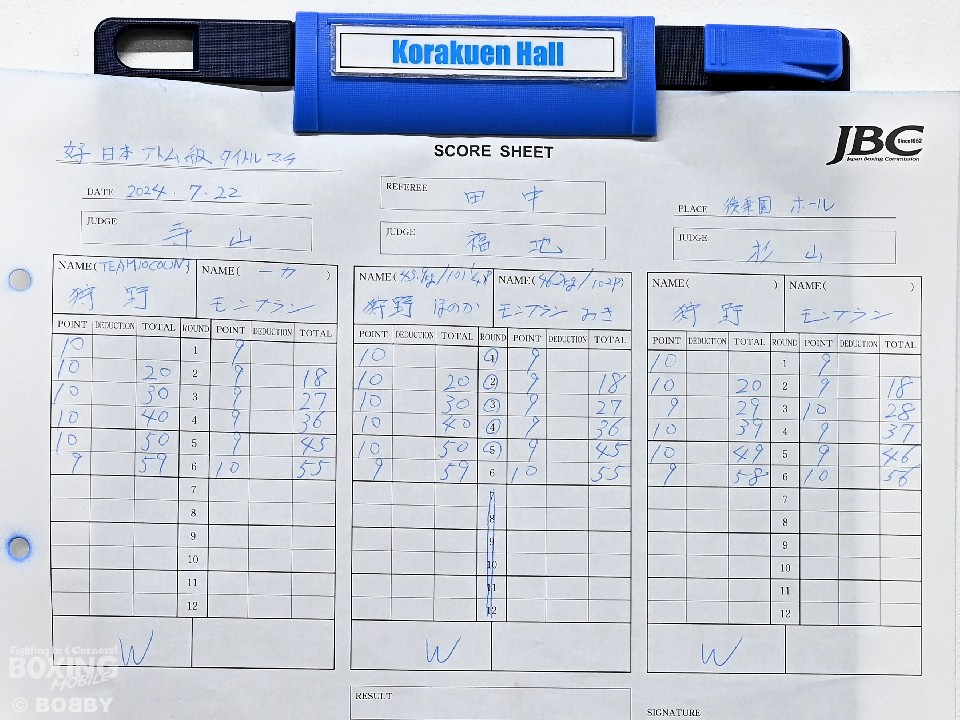 Korakuen Hall
JBC
Since1952
Japan Boxing Commission
SCORE SHEET
日本アトム級 タイトルマチ
DATE 2024.7.22
REFEREE 田中
PLACE 後楽園 ホール
JUDGE 寺山
JUDGE 福地
JUDGE 杉山
NAME( ) NAME( 一力 )
狩野 モンブラン
NAME( ) NAME( )
狩野 ほのか モンブラン みき
NAME( ) NAME( )
狩野 モンブラン
POINT DEDUCTION TOTAL ROUND POINT DEDUCTION TOTAL
10 1 9
10 20 2 9 18
10 30 3 9 27
10 40 4 9 36
10 50 5 9 45
9 59 6 10 55
7
8
9
10
11
12
W
POINT DEDUCTION TOTAL ROUND POINT DEDUCTION TOTAL
10 1 9
10 20 2 9 18
10 30 3 9 27
10 40 4 9 36
10 50 5 9 45
9 59 6 10 55
7
8
9
10
11
12
W
POINT DEDUCTION TOTAL ROUND POINT DEDUCTION TOTAL
10 1 9
10 20 2 9 18
9 29 3 10 28
10 39 4 9 37
10 49 5 9 46
9 58 6 10 56
7
8
9
10
11
12
W
RESULT
SIGNATURE
Fighting in 4 Corners!
BOXING
MOBILE
© BOBBY